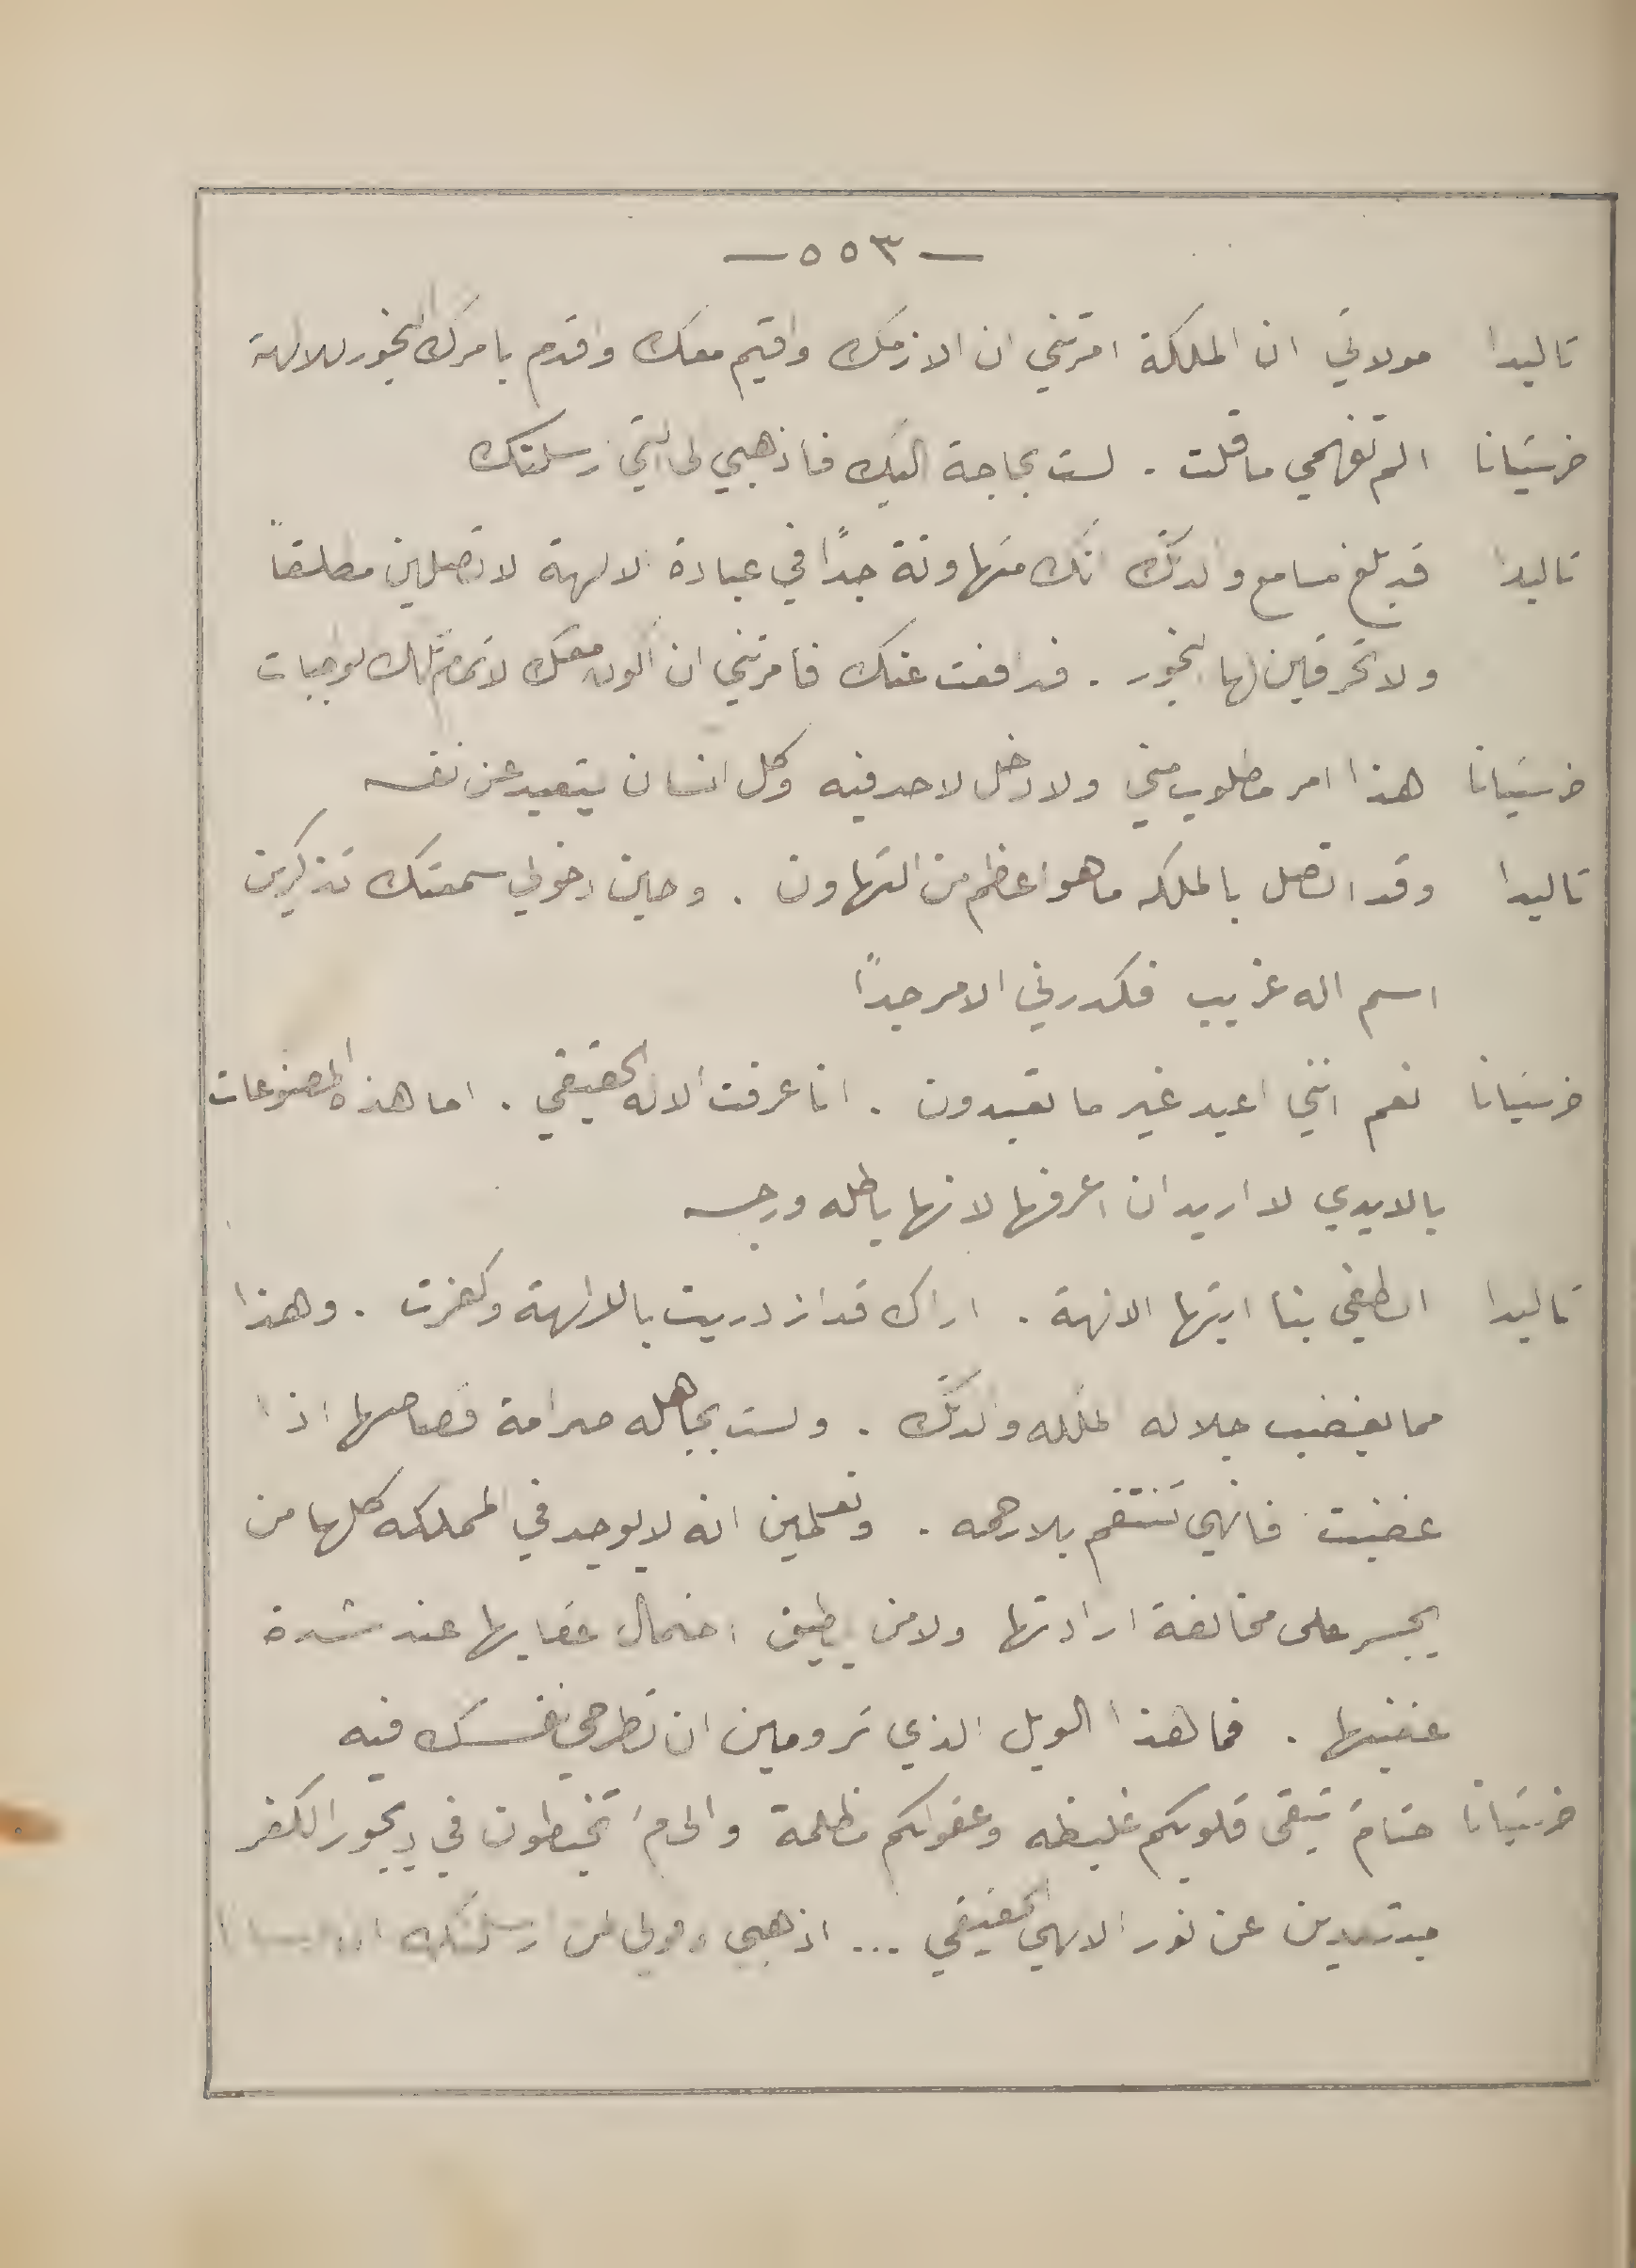 — ٥٥٣ —
تاليدا مولاتي ان الملكة امرتني ان الازمك واقيم معك واقدم بامرك البخور للالهة
خرستيانا الم تفهمي ما قلت . لست بحاجة اليك فاذهبي الى التي ارسلتك
تاليدا قد بلغ مسامع والدتك انك متهاونة جدًا في عبادة الالهة لا تصلين مطلقاً
ولا تحرقين لها البخور . فدافعت عنك فامرتني ان اكون معك لاتمام تلك الواجبات
خرستيانا هذا امر مطلوب مني ولا دخل لاحد فيه وكل انسان يتعبد عن نفسه
تاليدا وقد اتصل بالملكه ما هو اعظم من التهاون . وحين دخولي سمعتك تذكرين
اسم اله غريب فكدرني الامر جداً
خرستيانا نعم انني اعبد غير ما تعبدون . انا عرفت الاله الحقيقي . اما هذه المصنوعات
بالايدي لا اريد ان اعرفها لانها باطله ورجسه
تاليدا الطفي بنا ايتها الالهة . اراك قد ازدريت بالالهة وكفرت . وهذا
مما يغضب جلاله الملكه والدتك . ولست بجاهله صرامة قصاصها اذا
غضبت فانهي تنتقم بلا رحمه . وتعلمين انه لا يوجد في المملكه كلها من
يجسر على مخالفة ارادتها ولا من يطيق احتمال عقابها عند شدة
غضبها . فما هذا الويل الذي ترومين ان تطرحي نفسك فيه
خرستيانا حتامَ تبقى قلوبكم غليظه وعقولكم مظلمة والى مَ تخبطون في ديجور الكفر
مبتعدين عن نور الالهي الحقيقي ... اذهبي وقولي لمن ارسلتك